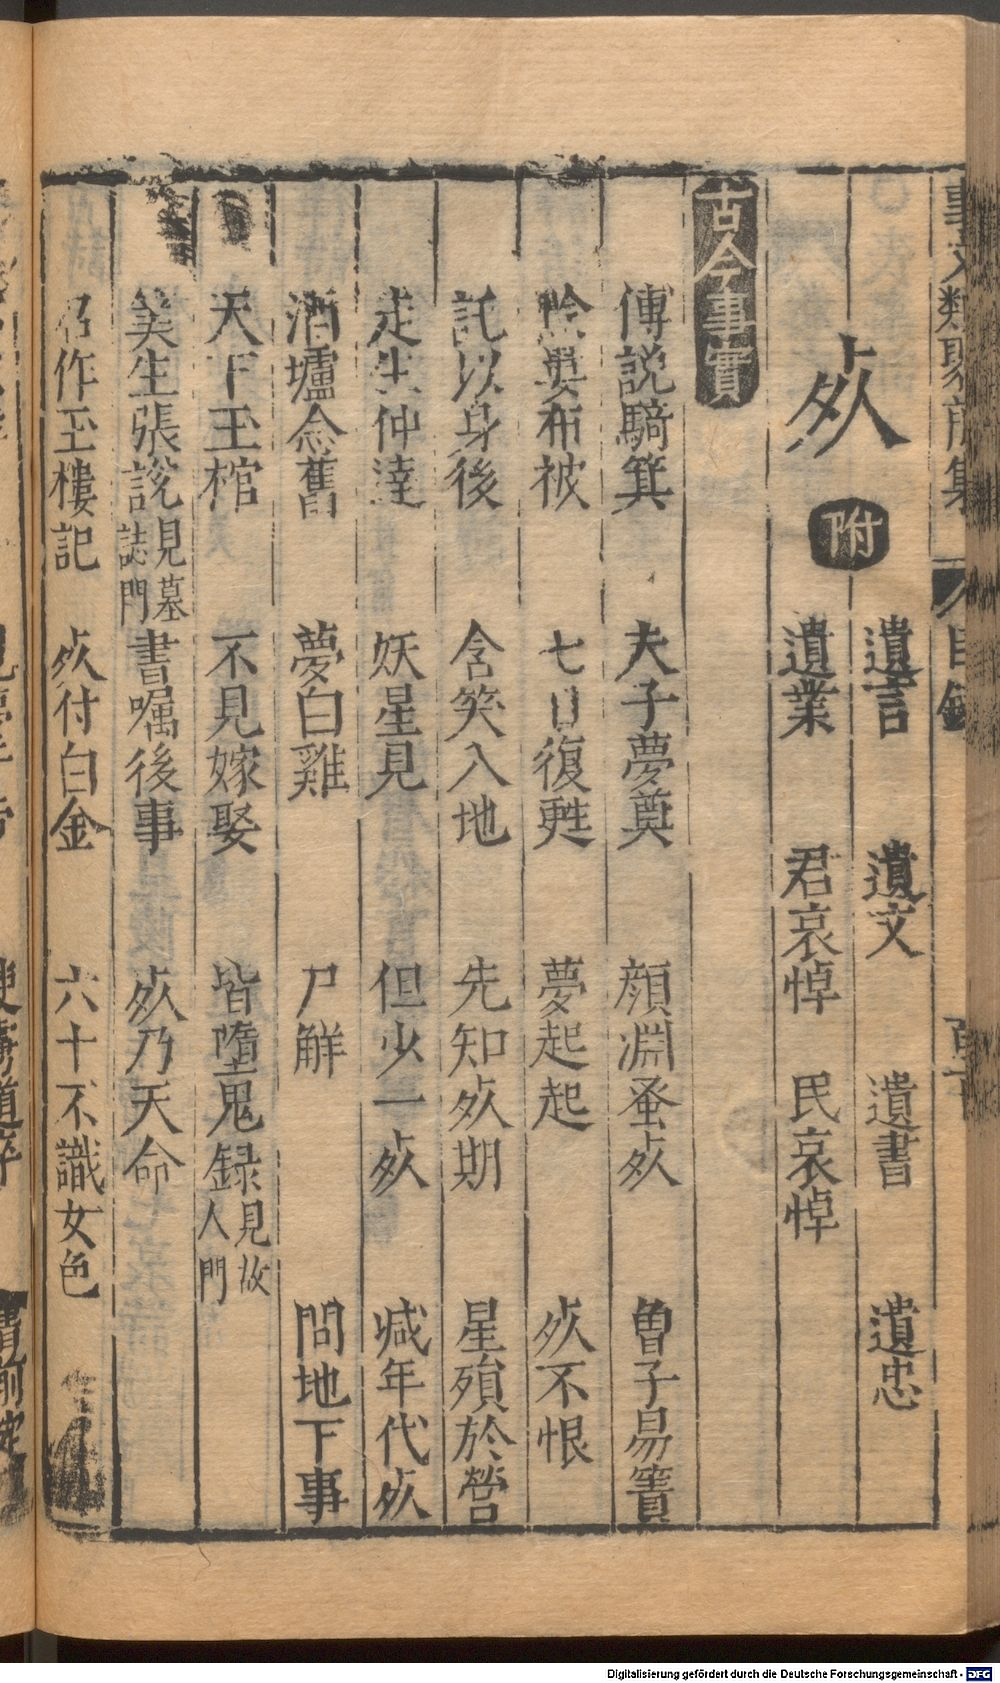 事文類聚前集 目録
遺言 遺文 遺書 遺忠
𣦸 附 遺業 君哀悼 民哀悼
古今事實
傅説騎箕 夫子夢奠 顔淵蚤𣦸 曽子易簀
黔婁布被 七日復甦 夢起起 𣦸不恨
託以身後 含笑入地 先知𣦸期 星殞於營
走生仲達 妖星見 但少一𣦸 減年代𣦸
酒壚念舊 夢白雞 尸解 問地下事
天下玉棺 不見嫁娶 皆墮鬼録 見故人門
筭生張說 見墓誌門 書嘱後事 𣦸乃天命
召作玉樓記 𣦸付白金 六十不識女色
Digitalisierung gefördert durch die Deutsche Forschungsgemeinschaft - DFG